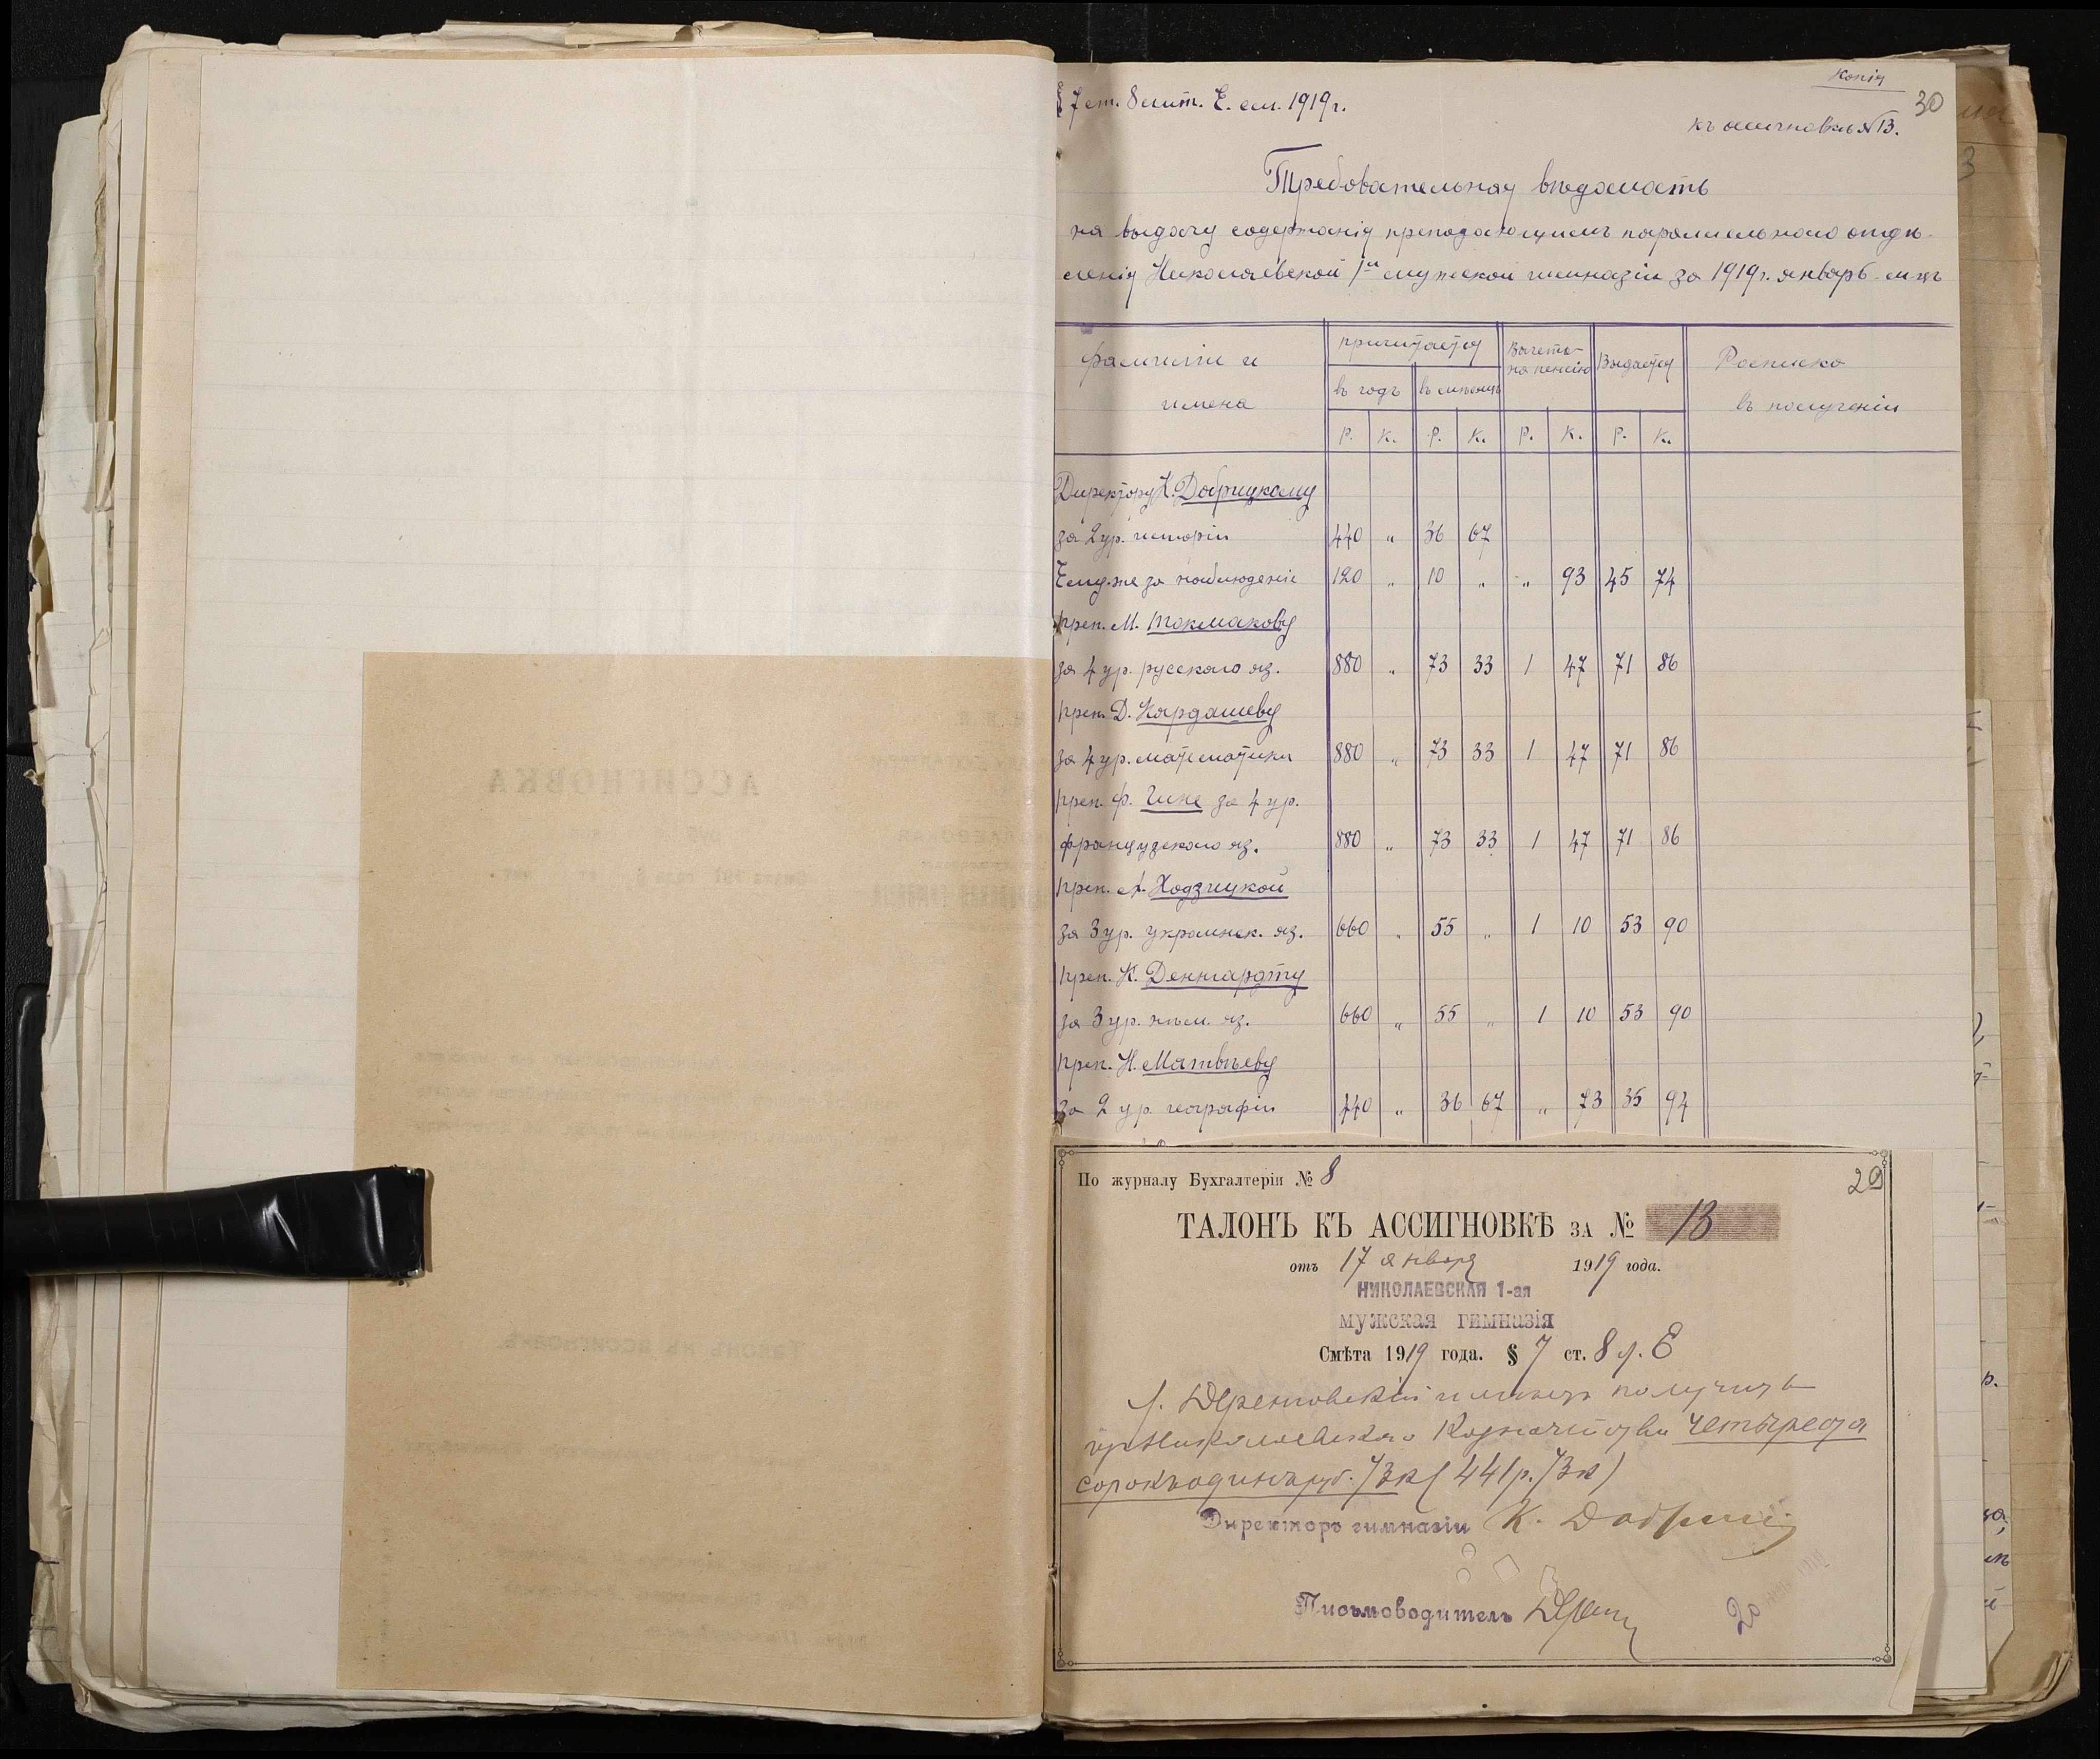 Копія
30
§ 7 ст. 8 лит. Е. см. 1919 г.
къ ассигновкѣ № 13.
Требовательная вѣдомость
на выдачу содержанія преподающимъ параллельнаго отдѣ-
ленія Николаевской 1-й мужской гимназіи за 1919 г. январь м-цъ
Фамиліи и имена | Причитается въ годъ Р. К. | въ мѣсяцъ Р. К. | Вычетъ на пенсію Р. К. | Выдается Р. К. | Росписка въ полученіи
Директору К. Добрицкому
за 2 ур. исторіи 440 „ 36 67
Ему-же за наблюденіе 120 „ 10 „ „ 93 45 74
преп. М. Токмакову
за 4 ур. русскаго яз. 880 „ 73 33 1 47 71 86
преп. Д. Кардашеву
за 4 ур. математики 880 „ 73 33 1 47 71 86
преп. Ф. за 4 ур.
французскаго яз. 880 „ 73 33 1 47 71 86
преп. А. Ходзицкой
за 3 ур. украинск. яз. 660 „ 55 „ 1 10 53 90
преп. К. Денгардту
за 3 ур. нѣм. яз. 660 „ 55 „ 1 10 53 90
преп. Н. Матвѣеву
за 2 ур. географіи 440 „ 36 67 „ 73 35 94
По журналу Бухгалтеріи № 8
29
ТАЛОНЪ КЪ АССИГНОВКѢ ЗА № 13
отъ 17 января 1919 года.
НИКОЛАЕВСКАЯ 1-ая
мужская гимназія
Смѣта 1919 года. § 7 ст. 8 л. Е
имѣетъ получить
Николаевскаго Казначейства четыреста
сорокъ одинъ руб. 73 к (441 р. 73 к)
Директоръ гимназіи К.
Письмоводитель
20